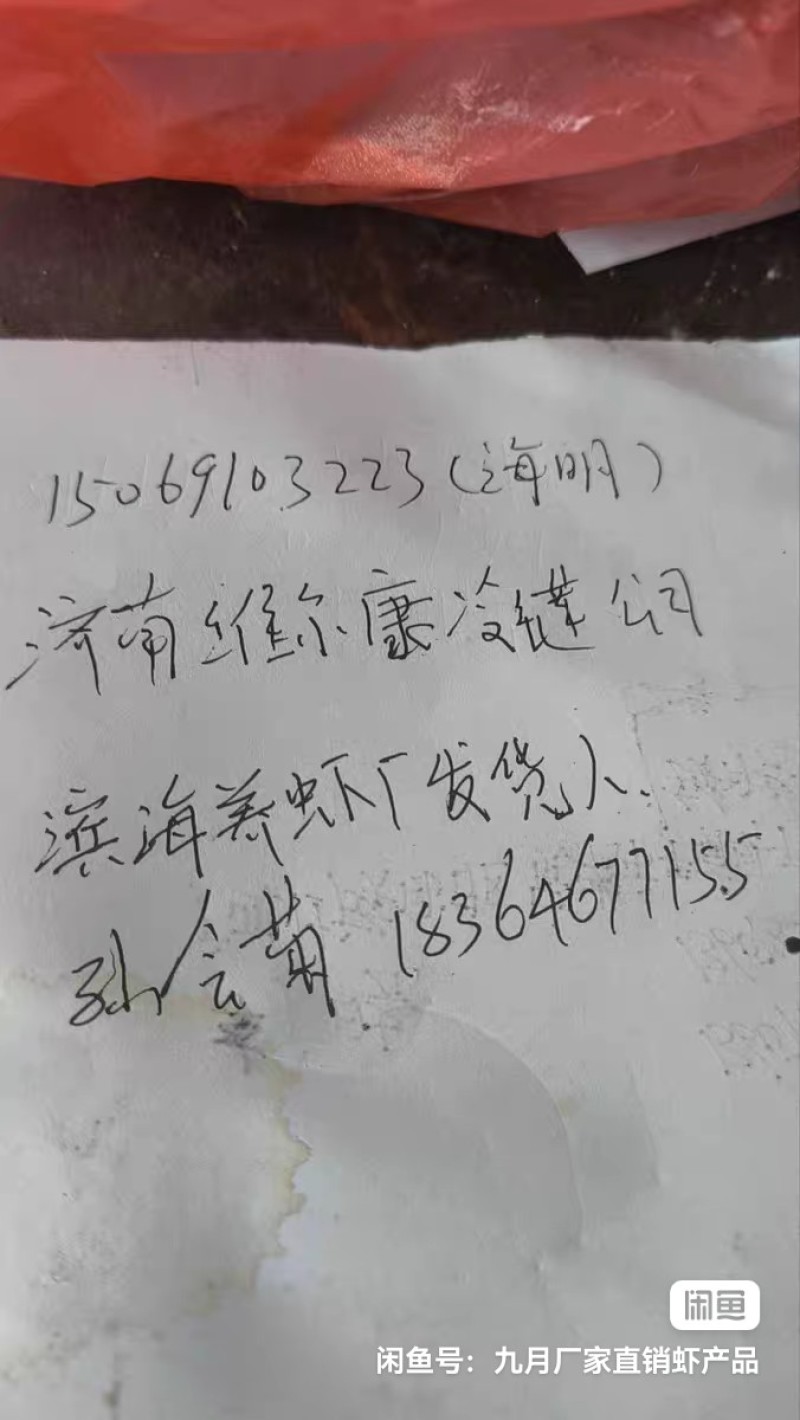 15069103223(海明)
济南维尔康冷链公司
滨海养虾厂发货人.
孙会菊 18364677155
闲鱼
闲鱼号：九月厂家直销虾产品